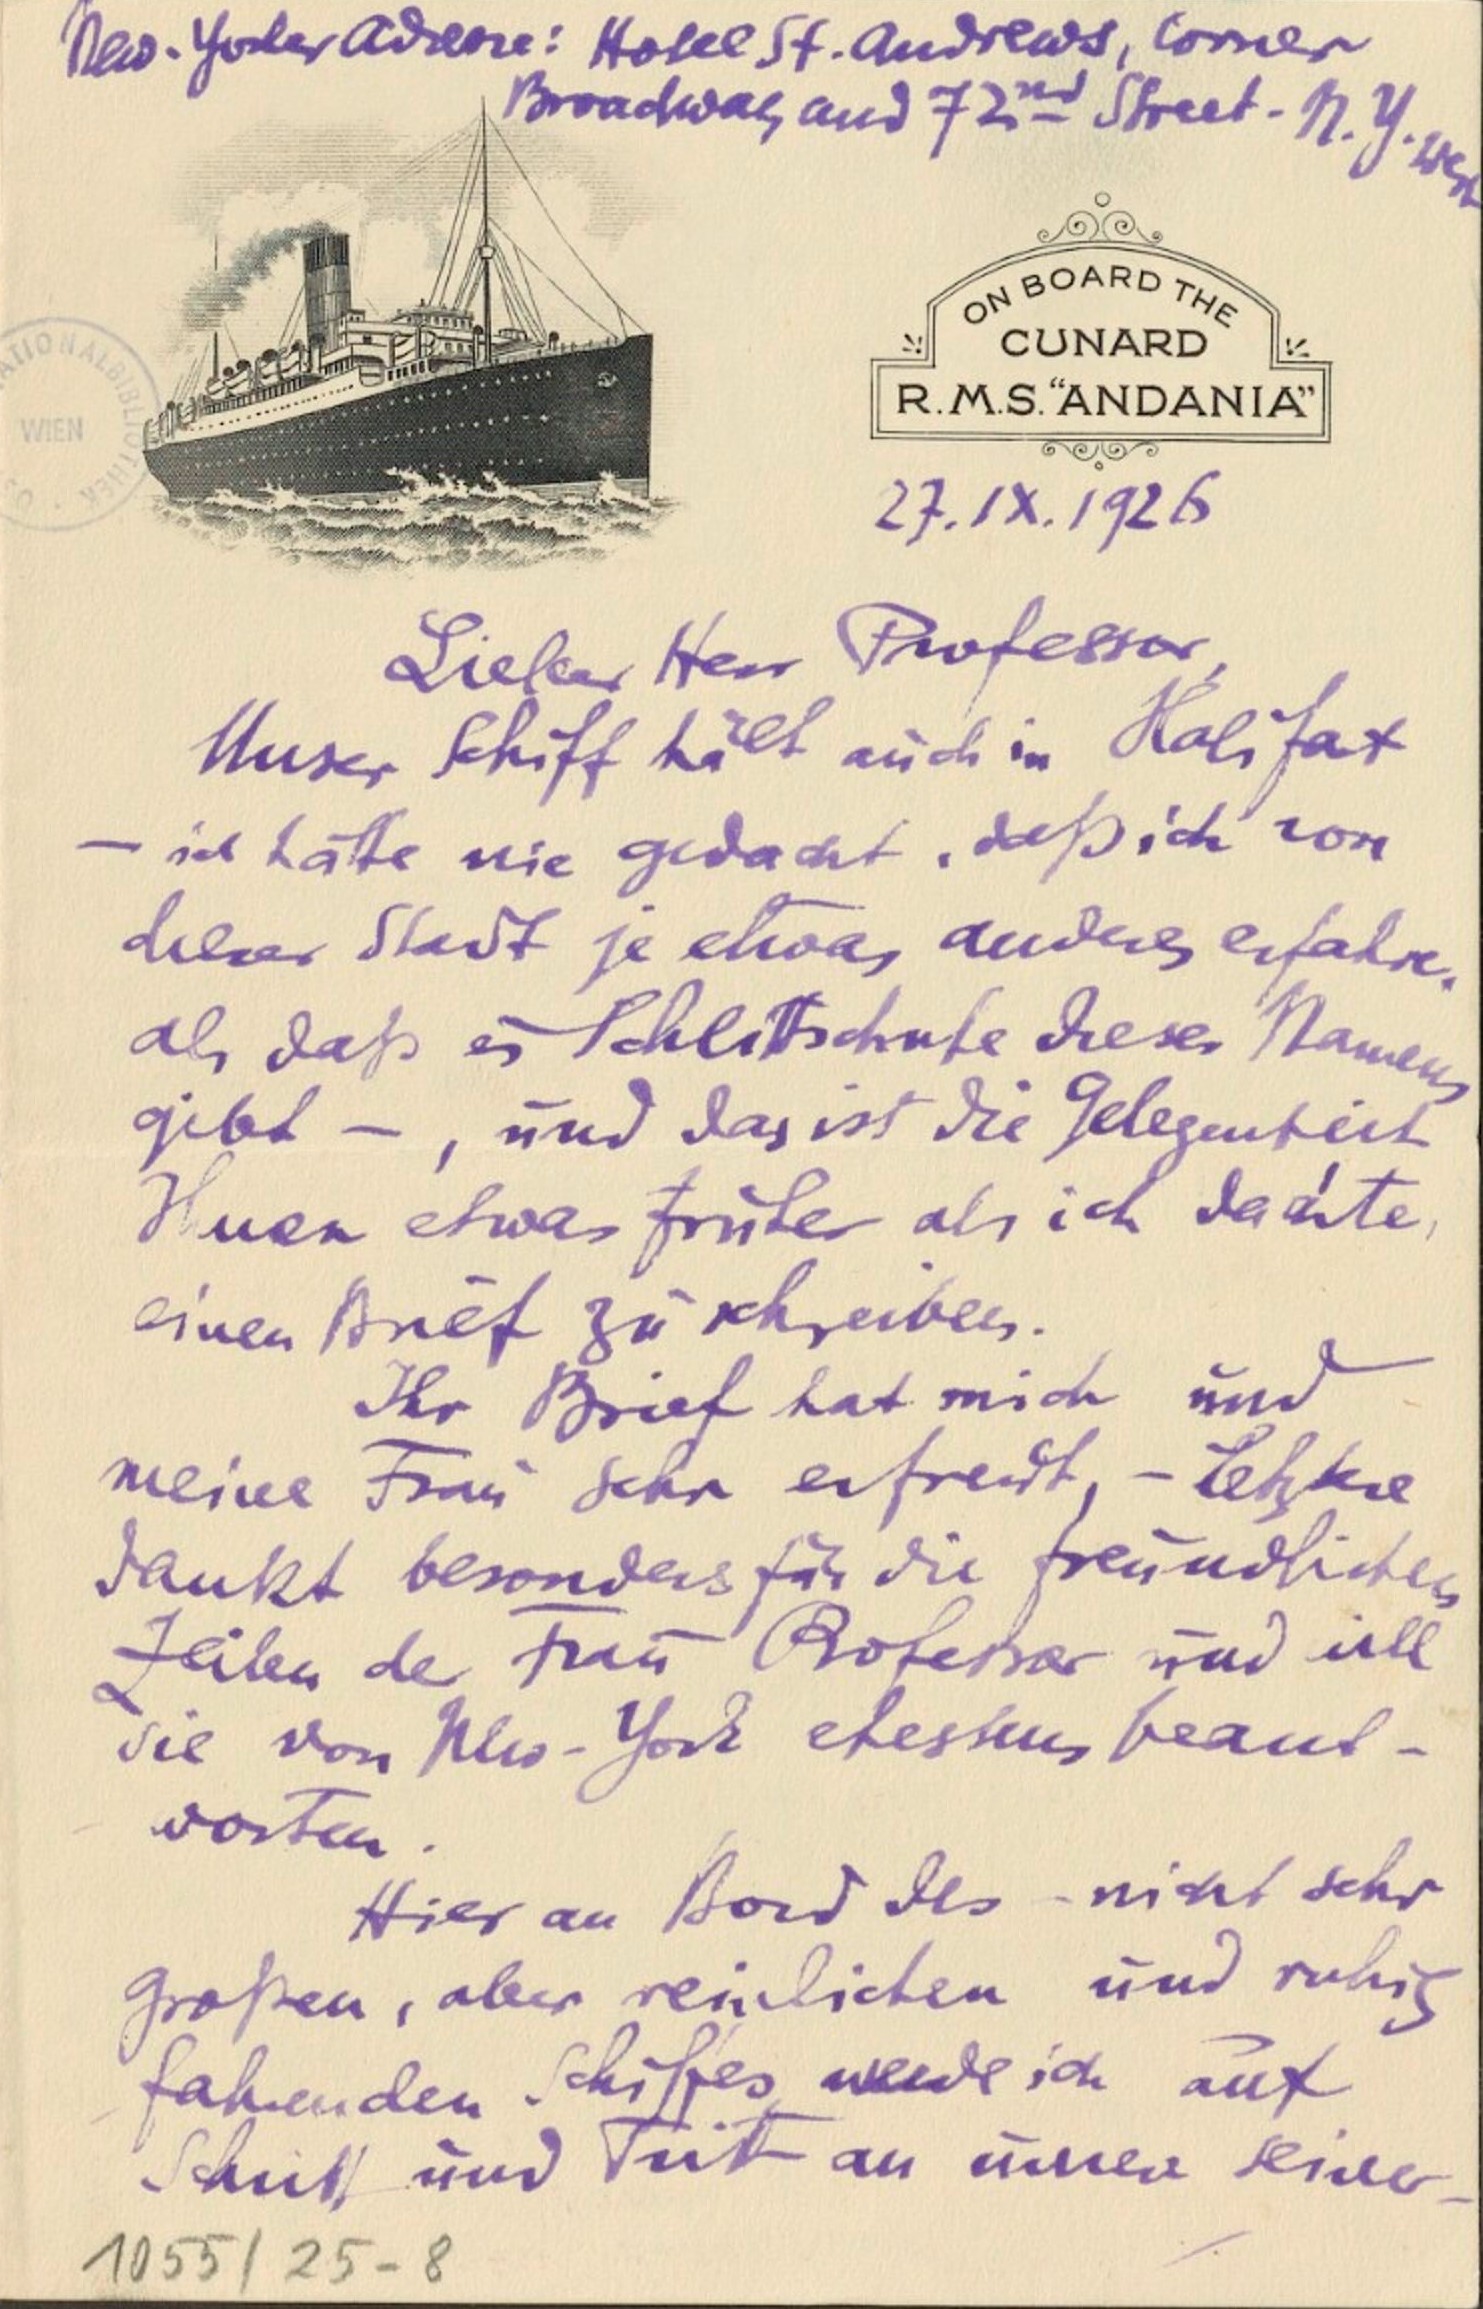 New-Yorker Adresse: Hotel St. Andrews, Corner
Broadway and 72nd Street - N.Y. West
ON BOARD THE
CUNARD
R.M.S. “ANDANIA”
NATIONALBIBLIOTHEK
WIEN
27.IX.1926
Lieber Herr Professor,
Unser Schiff hält auch in Halifax
– ich hätte nie gedacht, daß ich von
dieser Stadt je etwas anderes erfahre,
als daß es Schlittschuhe dieses Namens
gibt –, und das ist die Gelegenheit
Ihnen etwas früher als ich dachte,
einen Brief zu schreiben.
Ihr Brief hat mich und
meine Frau sehr erfreut, – Letztere
dankt besonders für die freundlichen
Zeilen der Frau Professor und will
sie von New-York ehestens beant-
worten.
Hier an Bord des – nicht sehr
großen, aber reinlichen und ruhig
fahrenden Schiffes werde ich auf
Schritt und Tritt an unsere seiner-
1055/25-8